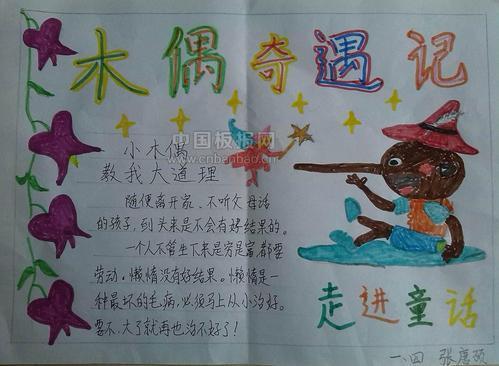 木偶奇遇记
中国板报网
www.cnbanbao.com
小木偶
教我大道理
随便离开家、不听父母话
的孩子，到头来是不会有好结果的。
一个人不管生下来是穷是富，都要
劳动，懒惰没有好结果。懒惰是一
种最坏的毛病，必须马上从小治好。
要不，大了就再也治不好了！
走进童话
一、四 张唐硕